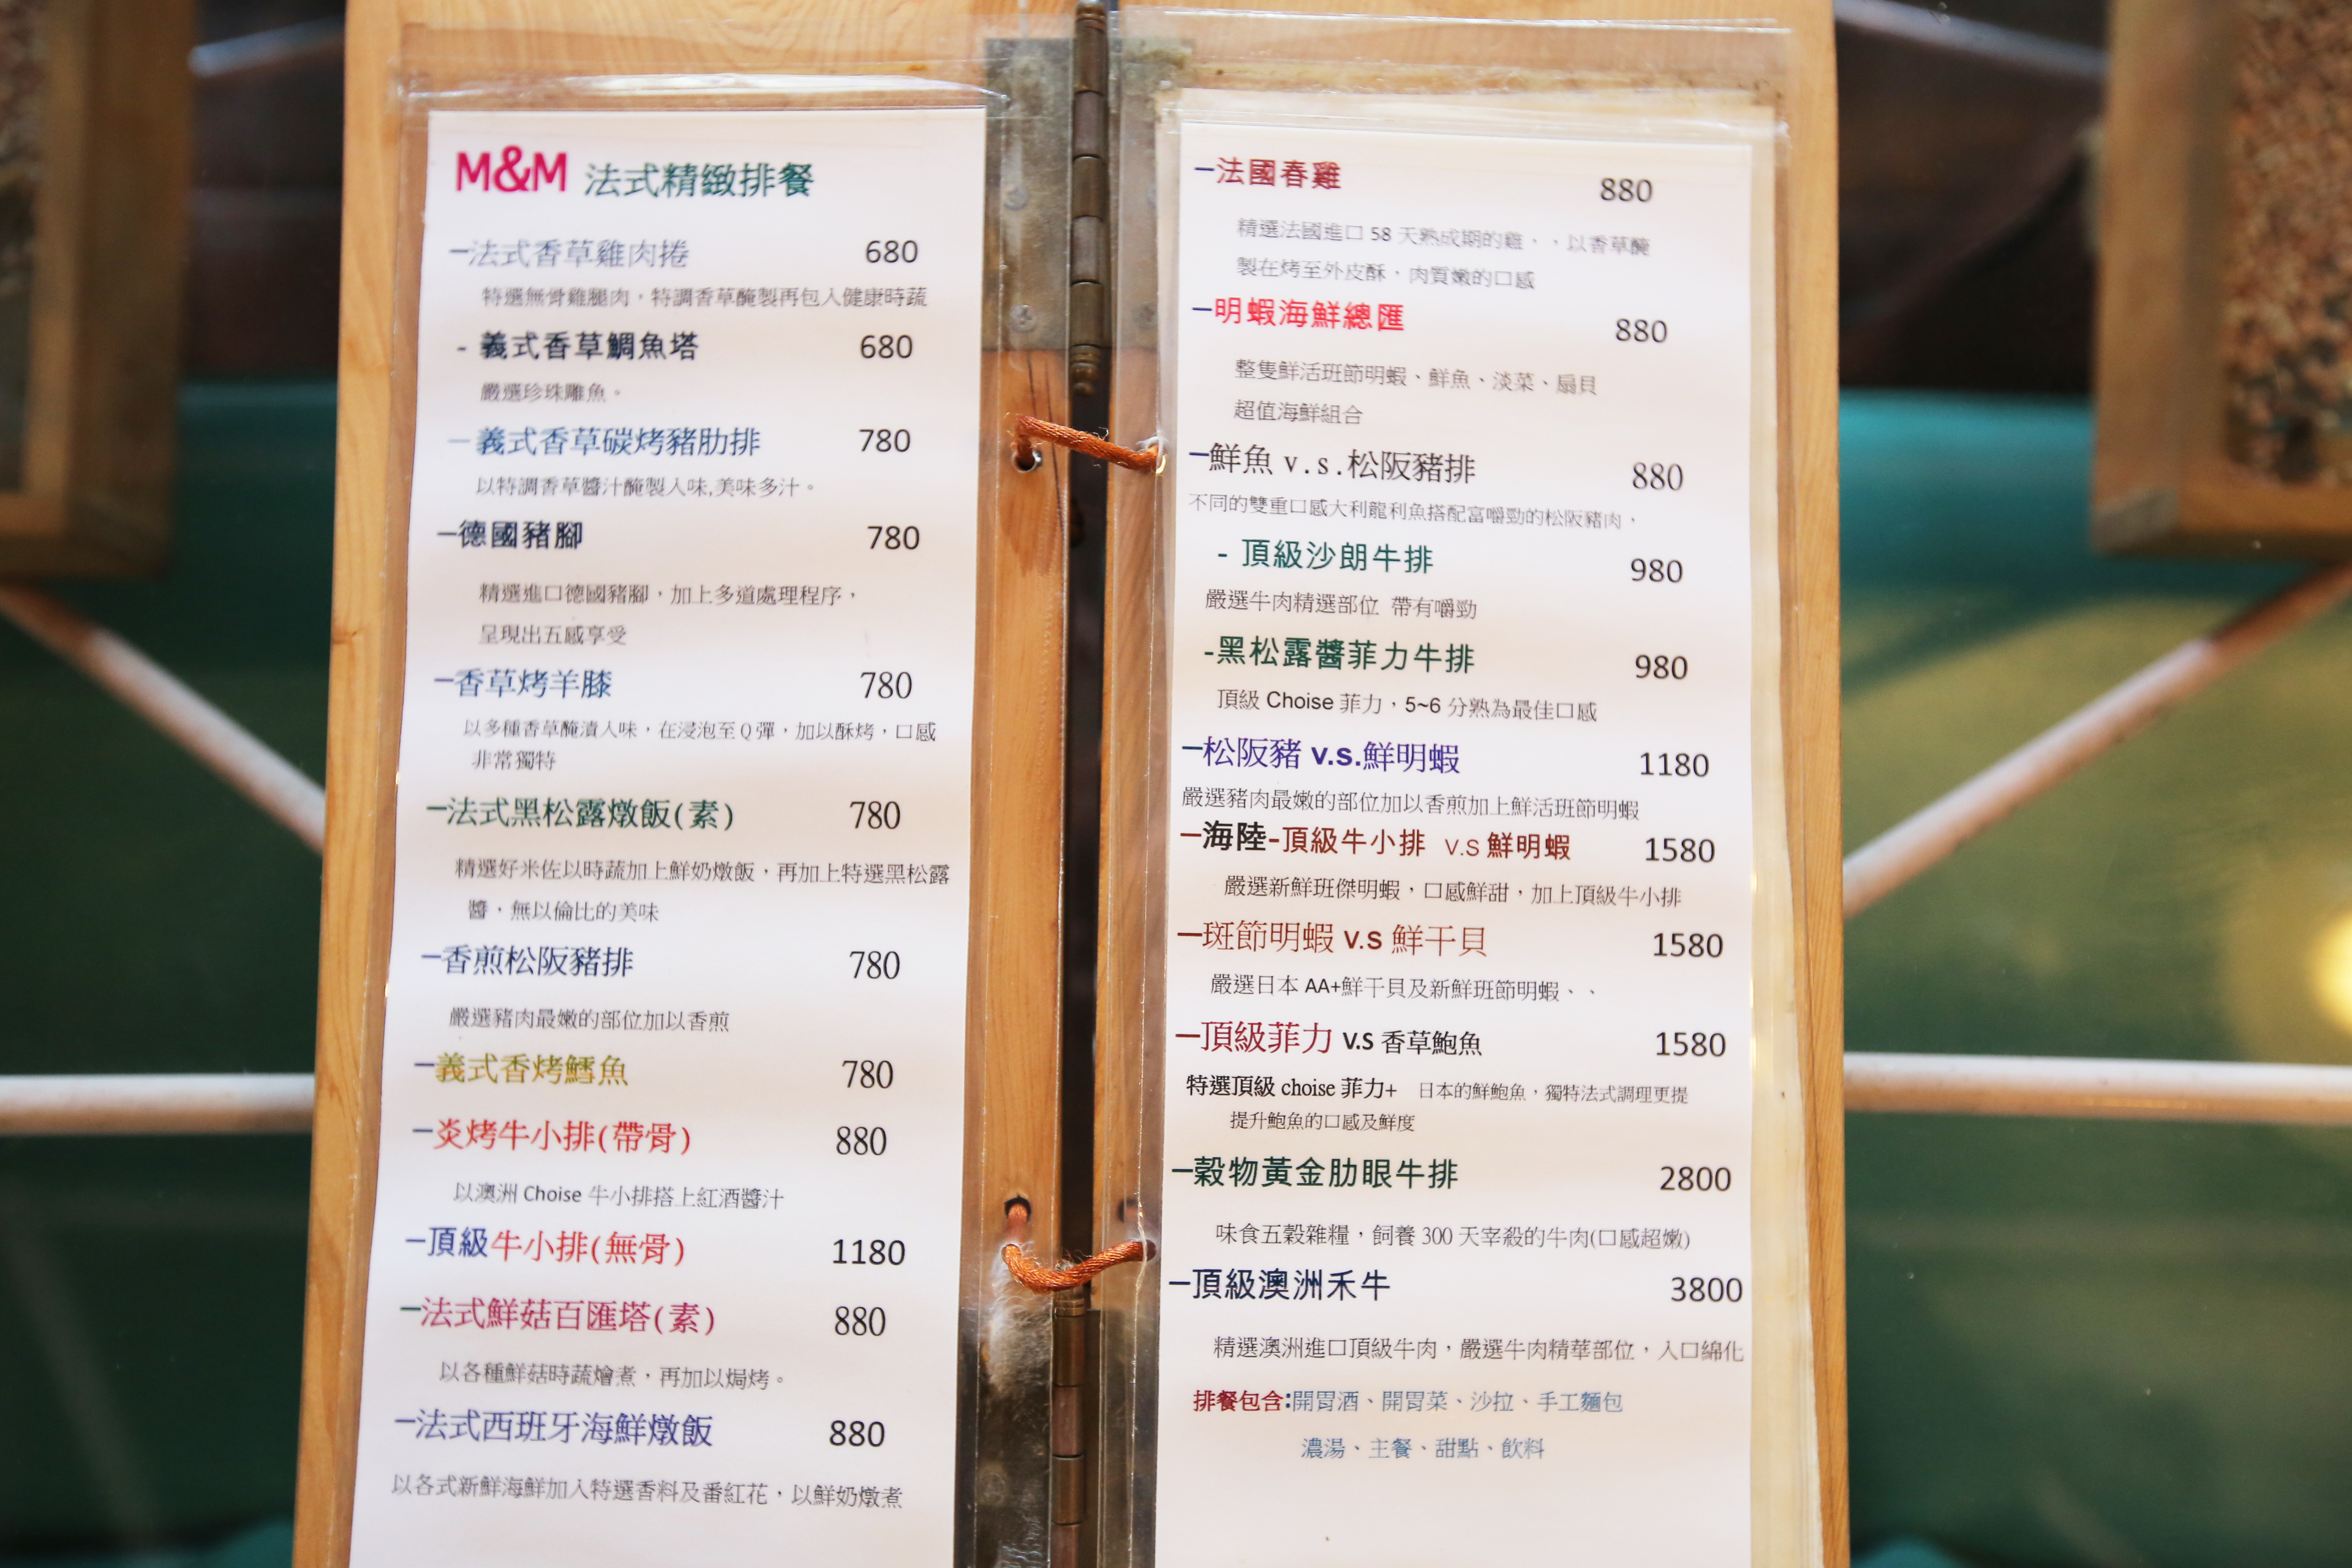 M&M 法式精緻排餐
–法式香草雞肉捲 680
特選無骨雞腿肉，特調香草醃製再包入健康時蔬
- 義式香草鯛魚塔 680
嚴選珍珠雕魚。
–義式香草碳烤豬肋排 780
以特調香草醬汁醃製入味,美味多汁。
–德國豬腳 780
精選進口德國豬腳，加上多道處理程序，
呈現出五感享受
–香草烤羊膝 780
以多種香草醃漬入味，在浸泡至Q彈，加以酥烤，口感
非常獨特
–法式黑松露燉飯(素) 780
精選好米佐以時蔬加上鮮奶燉飯，再加上特選黑松露
醬，無以倫比的美味
–香煎松阪豬排 780
嚴選豬肉最嫩的部位加以香煎
–義式香烤鱈魚 780
–炎烤牛小排(帶骨) 880
以澳洲 Choise 牛小排搭上紅酒醬汁
–頂級牛小排(無骨) 1180
–法式鮮菇百匯塔(素) 880
以各種鮮菇時蔬燴煮，再加以焗烤。
–法式西班牙海鮮燉飯 880
以各式新鮮海鮮加入特選香料及番紅花，以鮮奶燉煮
–法國春雞 880
精選法國進口 58 天熟成期的雞，，以香草醃
製在烤至外皮酥，肉質嫩的口感
–明蝦海鮮總匯 880
整隻鮮活班節明蝦、鮮魚、淡菜、扇貝
超值海鮮組合
–鮮魚 v.s.松阪豬排 880
不同的雙重口感大利龍利魚搭配富嚼勁的松阪豬肉，
- 頂級沙朗牛排 980
嚴選牛肉精選部位 帶有嚼勁
-黑松露醬菲力牛排 980
頂級 Choise 菲力，5~6 分熟為最佳口感
–松阪豬 v.s.鮮明蝦 1180
嚴選豬肉最嫩的部位加以香煎加上鮮活班節明蝦
–海陸-頂級牛小排 V.S 鮮明蝦 1580
嚴選新鮮班傑明蝦，口感鮮甜，加上頂級牛小排
–斑節明蝦 v.s 鮮干貝 1580
嚴選日本 AA+鮮干貝及新鮮班節明蝦、、
–頂級菲力 v.s 香草鮑魚 1580
特選頂級 choise 菲力+ 日本的鮮鮑魚，獨特法式調理更提
提升鮑魚的口感及鮮度
–穀物黃金肋眼牛排 2800
味食五穀雜糧，飼養 300 天宰殺的牛肉(口感超嫩)
–頂級澳洲禾牛 3800
精選澳洲進口頂級牛肉，嚴選牛肉精華部位，入口綿化
排餐包含:開胃酒、開胃菜、沙拉、手工麵包
濃湯、主餐、甜點、飲料